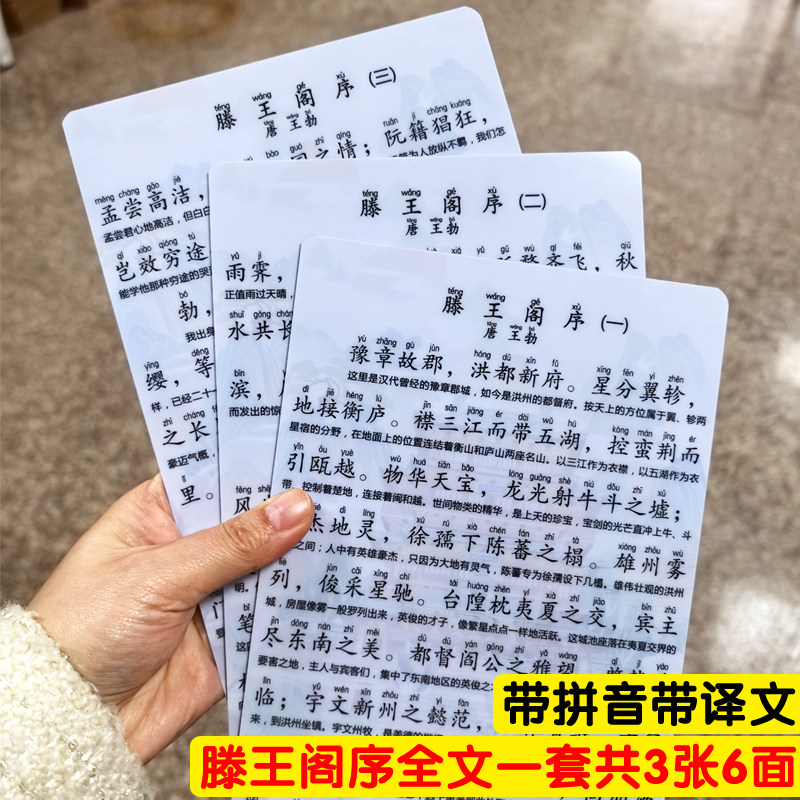 téng wáng gé xù
滕王阁序(三)
táng wáng bó
唐 王勃
ruǎn jí chāng kuáng
之情；阮籍猖狂，
为人放纵不羁，我们怎
mèng cháng gāo jié
孟尝高洁，
孟尝君心地高洁，但白白
qǐ xiào qióng tú
岂效穷途
能学他那种穷途的哭
bó
勃，
我出身
yīng děng
缨，等
样，已经二十
zhī cháng
之长
豪迈气概，
里。
téng wáng gé xù
滕王阁序(二)
táng wáng bó
唐 王勃
yǔ jì
雨霁，
齐飞，秋
正值雨过天晴，
shuǐ gòng cháng
水共长
bīn
滨，
而发出的惊
fēng
风
明。
笔
téng wáng gé xù
滕王阁序(一)
táng wáng bó
唐 王勃
yù zhāng gù jùn hóng dū xīn fǔ xīng fēn yì zhěn
豫章故郡，洪都新府。星分翼轸，
这里是汉代曾经的豫章郡城，如今是洪州的都督府。按天上的方位属于翼、轸两
dì jiē héng lú jīn sān jiāng ér dài wǔ hú kòng mán jīng ér
地接衡庐。襟三江而带五湖，控蛮荆而
星宿的分野，在地面上的位置连结着衡山和庐山两座名山。以三江作为衣襟，以五湖作为衣
yǐn ōu yuè wù huá tiān bǎo lóng guāng shè niú dǒu zhī xū
引瓯越。物华天宝，龙光射牛斗之墟；
带，控制着楚地，连接着闽和越。世间物类的精华，是上天的珍宝，宝剑的光芒直冲上牛、斗
jié dì líng xú rú xià chén fān zhī tà xióng zhōu wù
杰地灵，徐孺下陈蕃之榻。雄州雾
之间；人中有英雄豪杰，只因为大地有灵气，陈蕃专为徐孺设下几榻。雄伟壮观的洪州
liè jùn cǎi xīng chí tái huáng zhěn yí xià zhī jiāo bīn zhǔ
列，俊采星驰。台隍枕夷夏之交，宾主
城，房屋像雾一般罗列出来，英俊的才子，像繁星点点一样地活跃。这城池座落在夷夏交界的
jìn dōng nán zhī měi dū dū yán gōng zhī yǎ wàng
尽东南之美。都督阎公之雅望
要害之地，主人与宾客们，集中了东南地区的英俊之
lín yǔ wén xīn zhōu zhī yì fàn
临；宇文新州之懿范，
来，到洪州坐镇。宇文州牧，是美德的
带拼音带译文
滕王阁序全文一套共3张6面